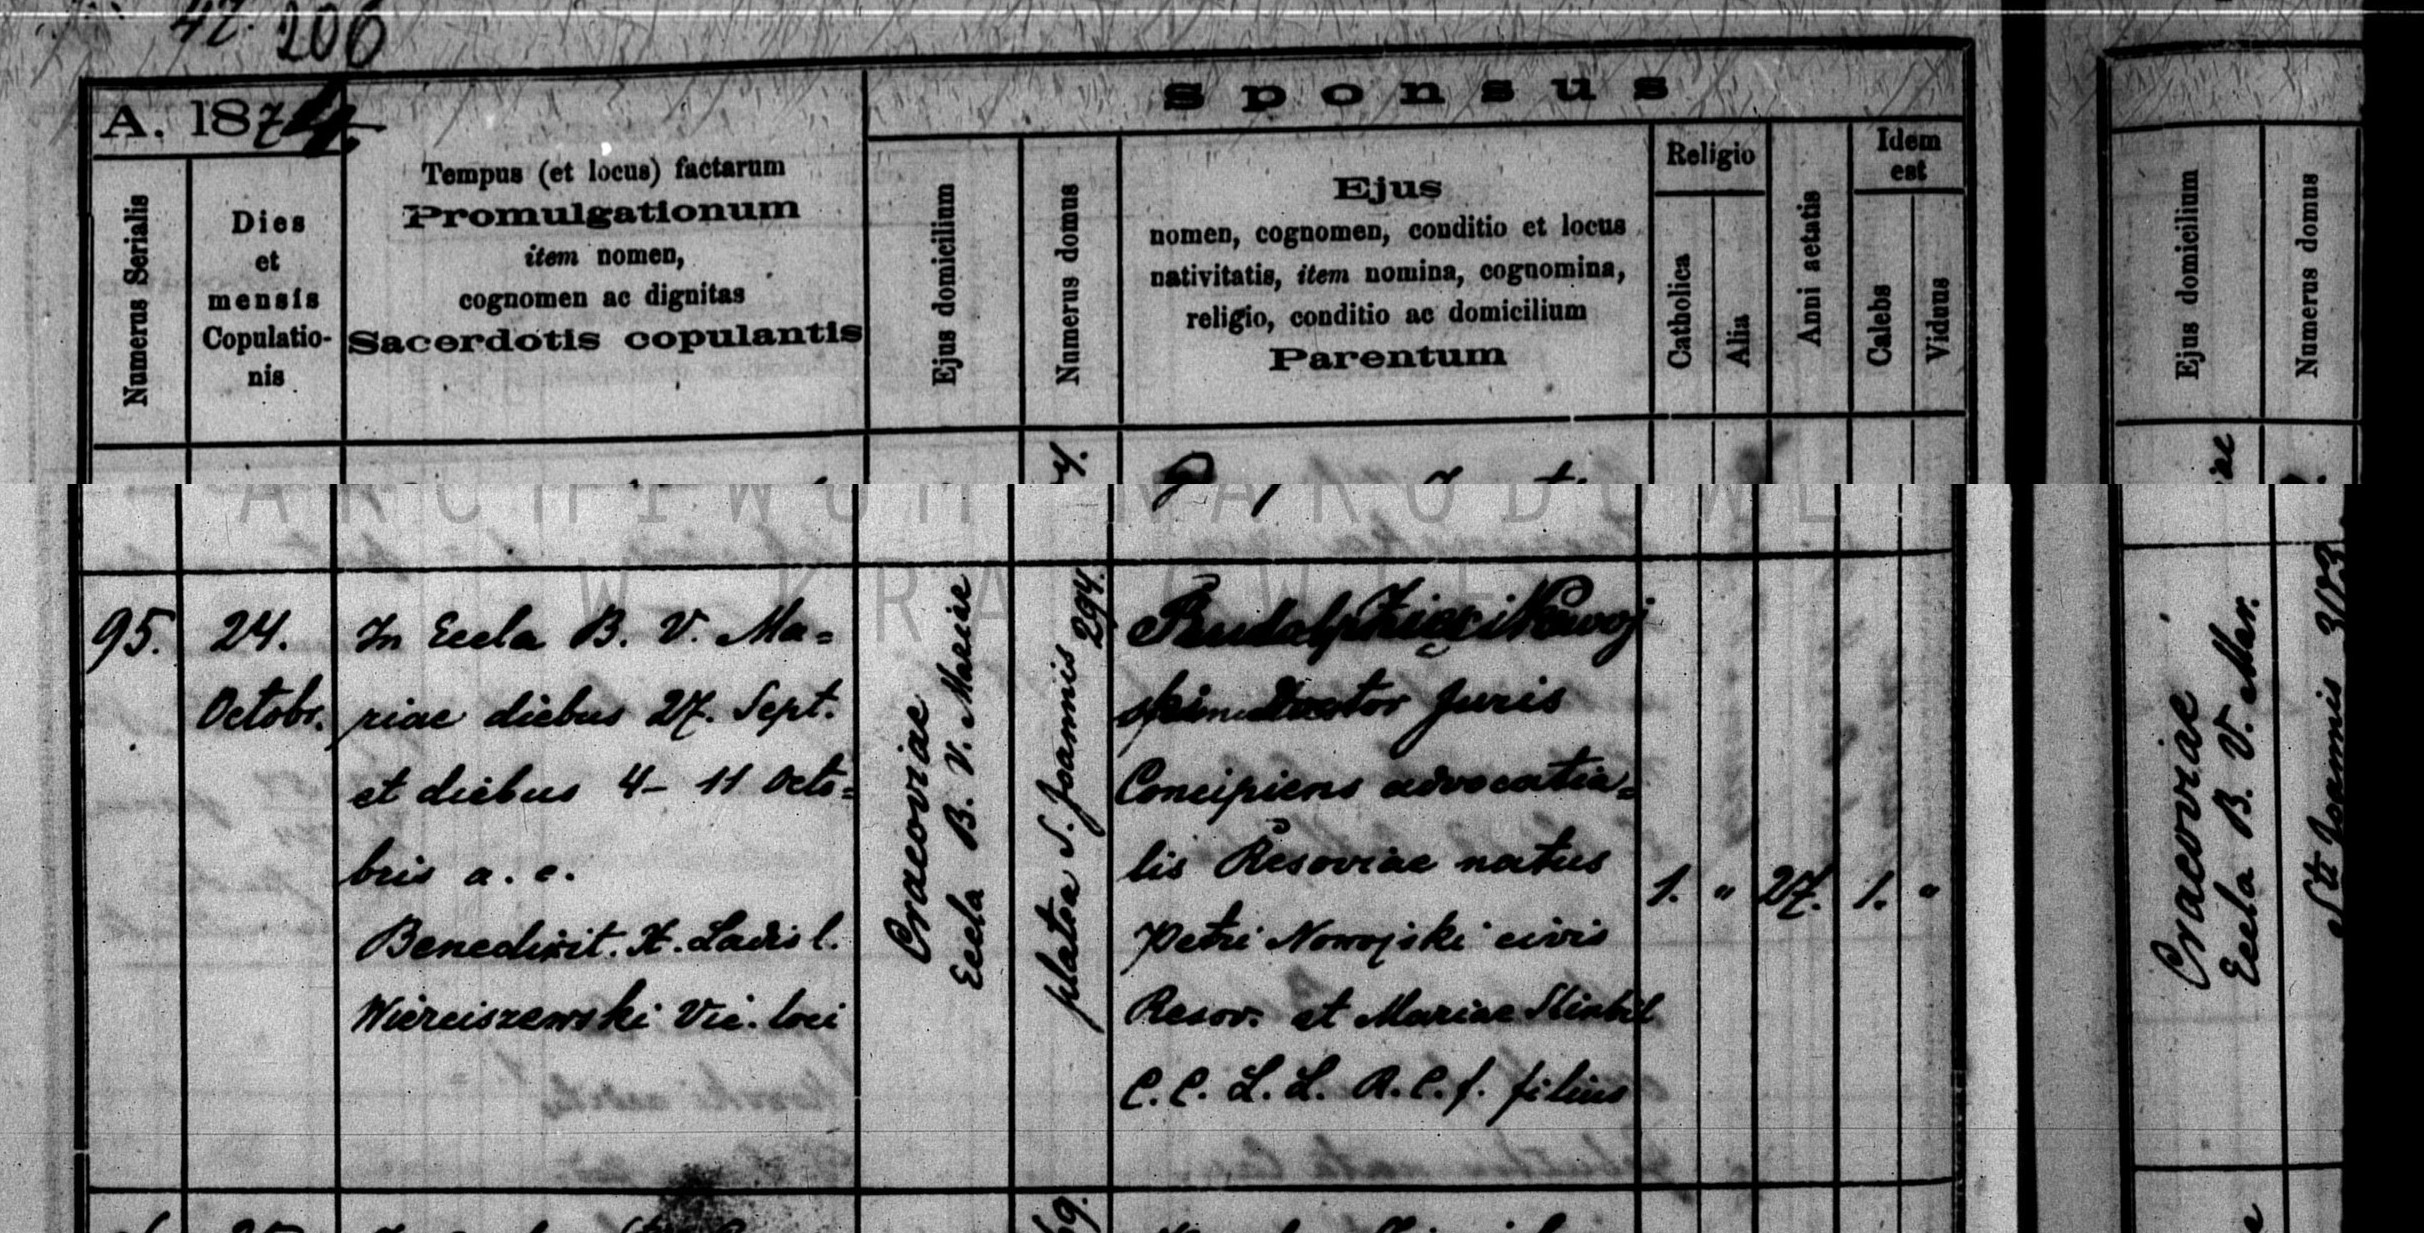 47. 206
A. 1874
Numerus Serialis
Dies
et
mensis
Copulatio-
nis
Tempus (et locus) factarum
Promulgationum
item nomen,
cognomen ac dignitas
Sacerdotis copulantis
Sponsus
Ejus domicilium
Numerus domus
Ejus
nomen, cognomen, conditio et locus
nativitatis, item nomina, cognomina,
religio, conditio ac domicilium
Parentum
Religio
Catholica
Alia
Anni aetatis
Idem
est
Calebs
Viduus
Ejus domicilium
Numerus domus
ARCHIWUM NARODOWE
W KRAKOWIE
95.
24.
Octobr.
In Eccla B. V. Ma=
riae diebus 27. Sept.
et diebus 4- 11 Octo=
bris a. c.
Benedixit. X. Ladisl.
Wierciszewski Vic. loci
Cracoviae
Eccla B. V. Mariae
platea S. Joannis 294.
Doctor Juris
Concipiens advocatia=
lis Resoviae natus
Petri Nowojski civis
Resov. et Mariae
C. C. L. L. R. C. f. filius
1. " 27. 1. "
Cracoviae
Eccla B. V. Mar.
Sti Joannis